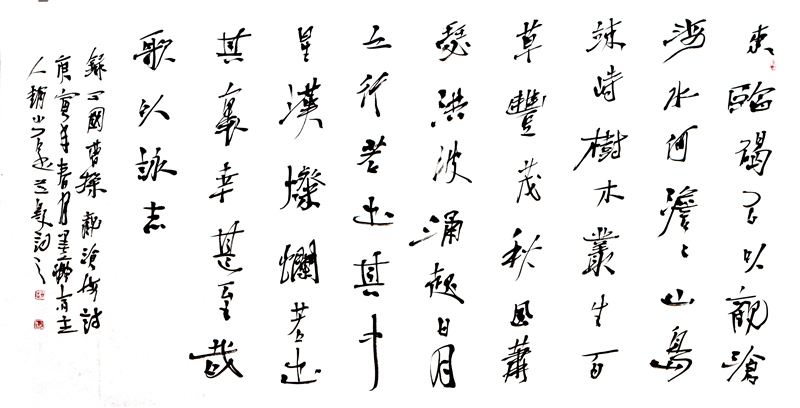 東臨碣石以觀滄
海水何澹〻山島
竦峙樹木叢生百
草豐茂秋風蕭
瑟洪波涌起日月
之行若出其中
星漢燦爛若出
其裏幸甚至哉
歌以詠志
錄三國曹操觀滄海詩
庚寅年春月墨齋主
人趙小記之